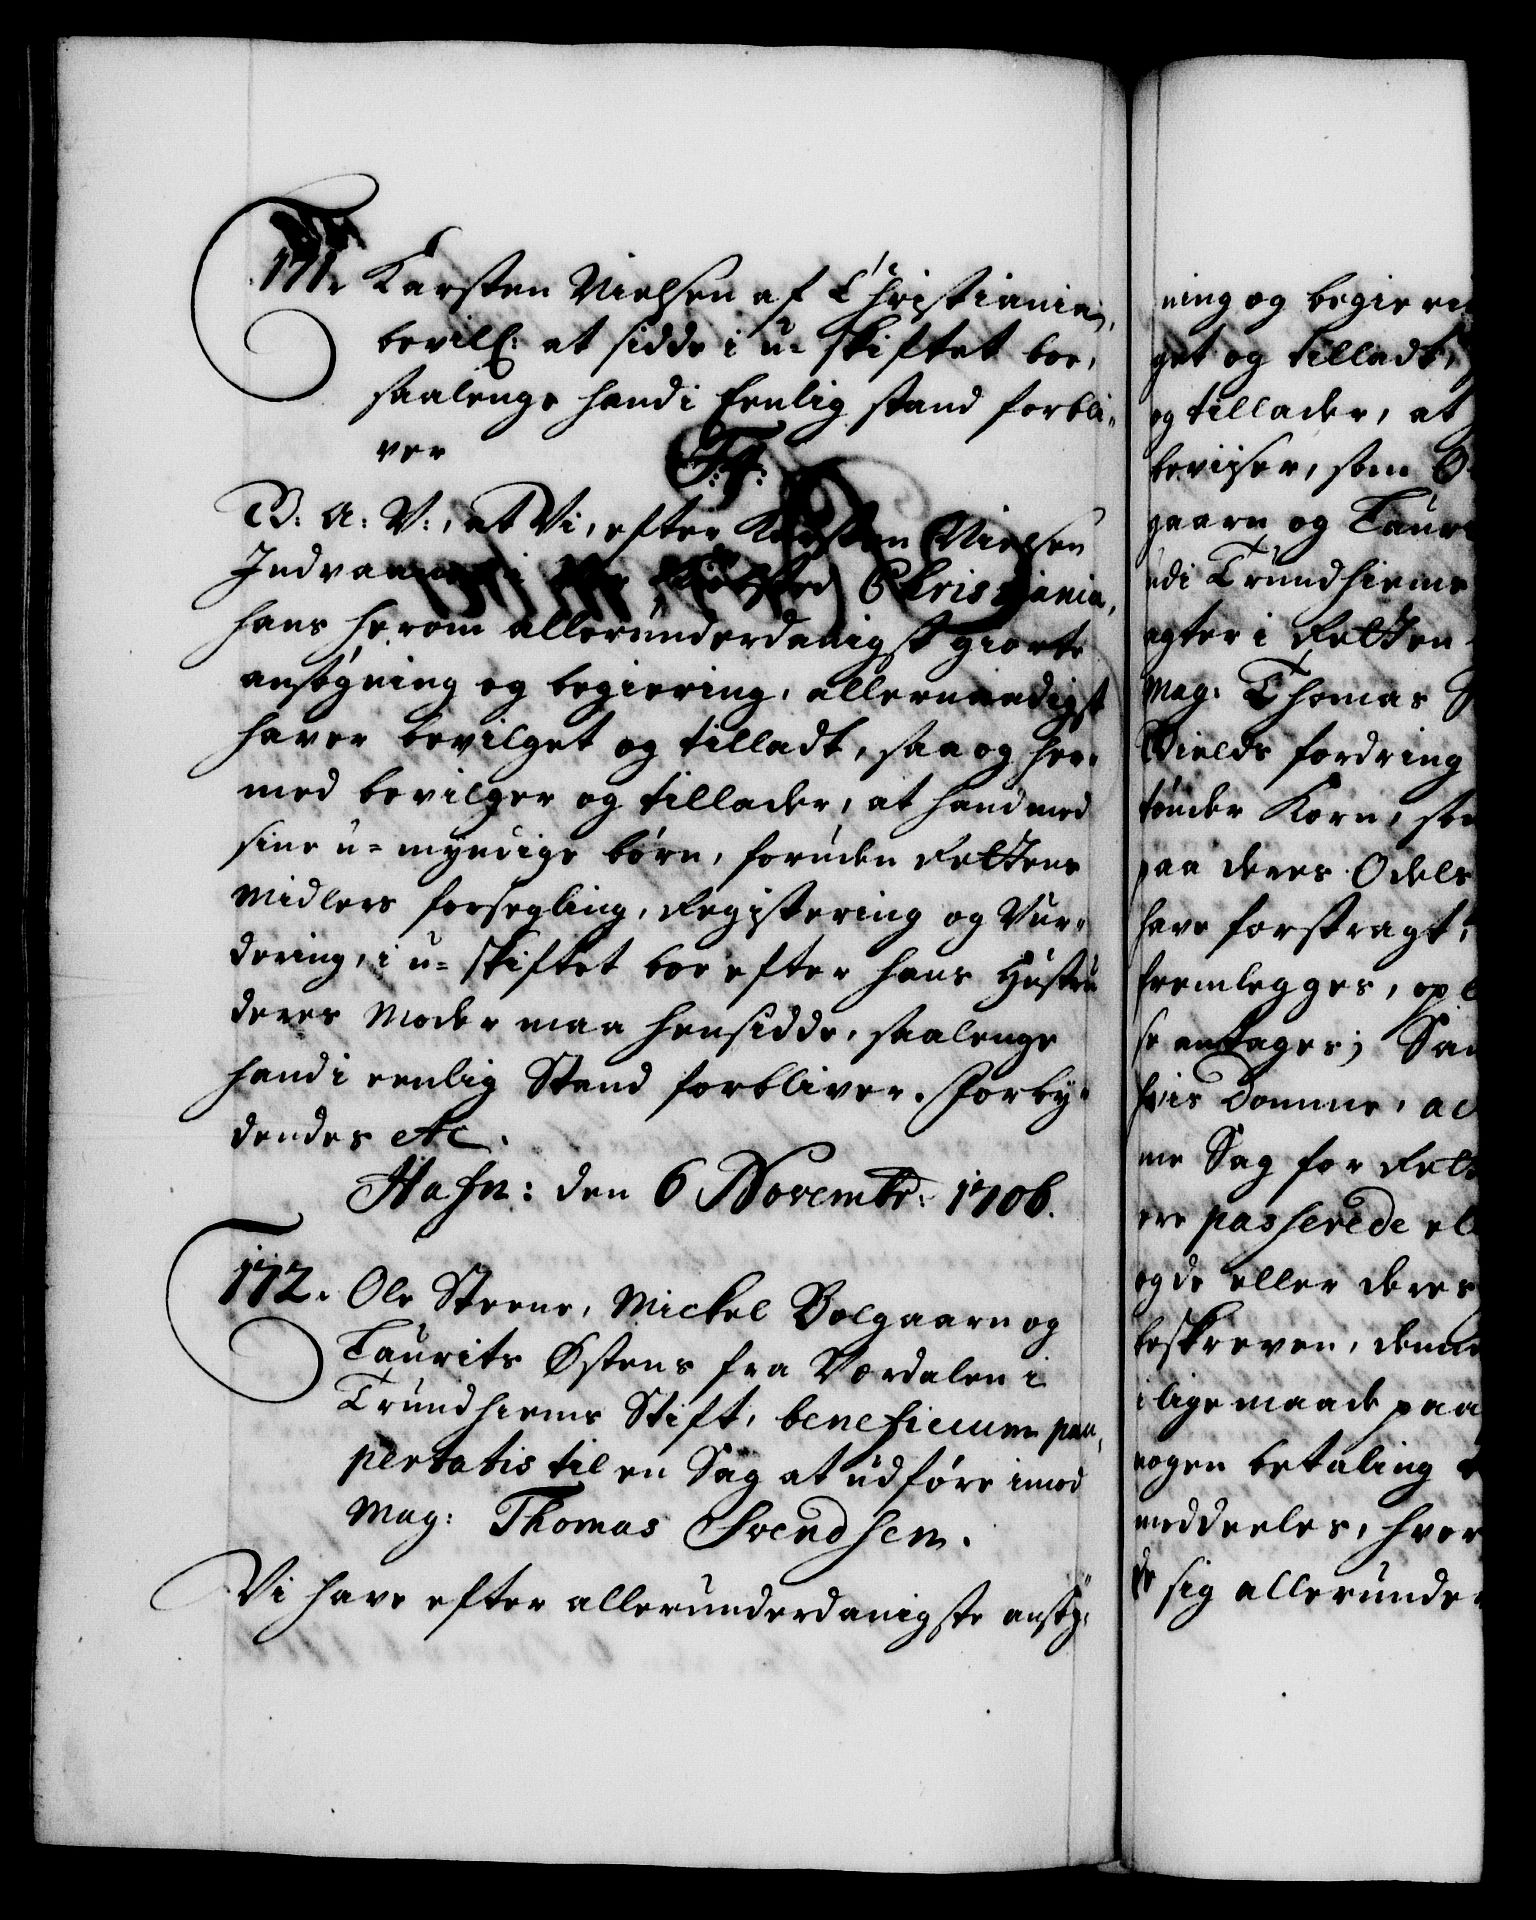 171. Karsten Nielsen af Christiania,
bevill: at sidde i u-skiftet boe,
saalenge hand i Eenlig stand forbli-
ver
F. 4.
G: A: V:, at Vi, efter Karsten Nielsen
Indvaaner i Christiania,
hans herom allerunderdanigst giorte
ansøgning og begiering, allernaadigst
haver bevilget og tilladt, saa og her-
med bevilger og tillader, at hand med
sine u-myndige børn, foruden Rettens
Midlers forsegling, Registering og Vur-
dering, i u-skiftet boe efter hans Hustru
deres Moder maa hensidde, saalenge
hand i eenlig Stand forbliver. Forby-
dendes etc.
Hafn: den 6 Novembr: 1706.
172. Ole Steene, Mickel Bolgaarn og
Laurits Østens fra Værdalen i
Trundhiems Stift, beneficium pau-
pertatis til en Sag at udføre imod
Mag: Thomas Svendsen.
Vi have efter allerunderdanigste ansøg-
ning og begieri
get og tilladt,
og tillader, at
beviser, som O
gaarn og Laur
udi Trundhiems
agter i Retten
Mag: Thomas
Gields fordring
tønder Korn, som
paa deres Odels
have forstragt,
fremlegges, opl
se antages; Sam
hvis Domme, ac
me Sag for Rett
ere passerede el
og de eller deres
beskreven, denne
i lige maade paa
nogen betaling
meddeeles, hvor
de sig allerunder